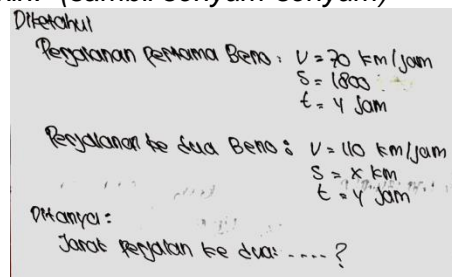 Diketahui
Perjalanan Pertama Beno : V = 70 km/jam
S = 1800
t = y jam
Perjalanan ke dua Beno : V = 110 km/jam
S = x km
t = y jam
Ditanya :
Jarak perjalan ke dua : .... ?